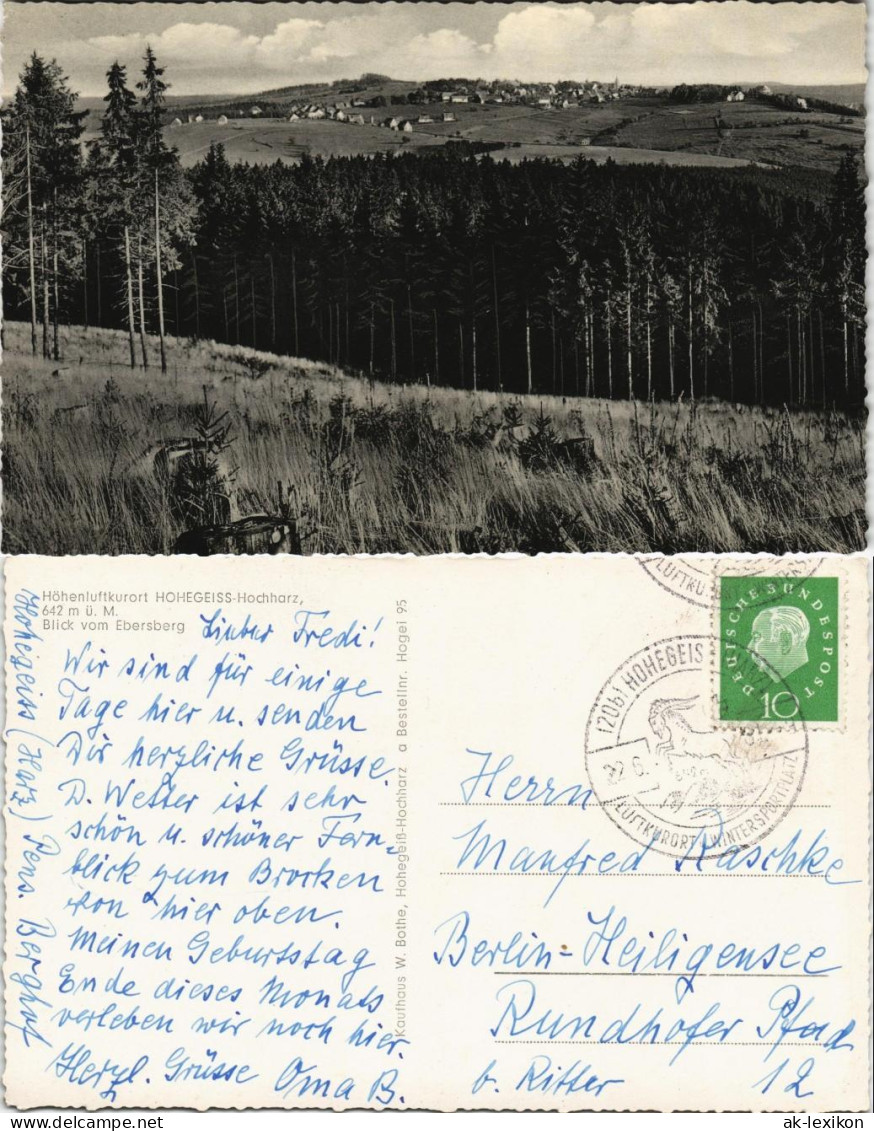 Höhenluftkurort HOHEGEISS-Hochharz,
642 m ü. M.
Blick vom Ebersberg
Lieber Fredi!
Wir sind für einige
Tage hier u. senden
Dir herzliche Grüsse.
D. Wetter ist sehr
schön u. schöner Fern-
blick zum Brocken
von hier oben.
Meinen Geburtstag
Ende dieses Monats
verleben wir noch hier.
Herzl. Grüsse Oma B.
Hohegeiss (Harz) Pens. Berghof
Kaufhaus W. Bothe, Hohegeiß-Hochharz a Bestellnr. Hogei 95
LUFTKURORT
(20b) HOHEGEISS
22.6.
LUFTKURORT WINTERSPORTPLATZ
DEUTSCHE BUNDESPOST
10
Herrn
Manfred Raschke
Berlin-Heiligensee
Rundhofer Pfad
b. Ritter 12
ak-lexikon.com